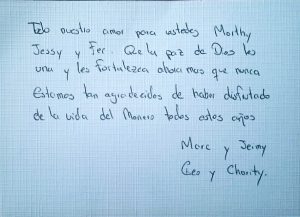 Todo nuestro amor para ustedes Marthy
Jessy y Fer. Que la paz de Dios les
una y les fortalezca ahora mas que nunca
Estamos tan agradecidos de haber disfrutado
de la vida del Monero todos estos años
Marc y Jeimy
Ceo y Charity.